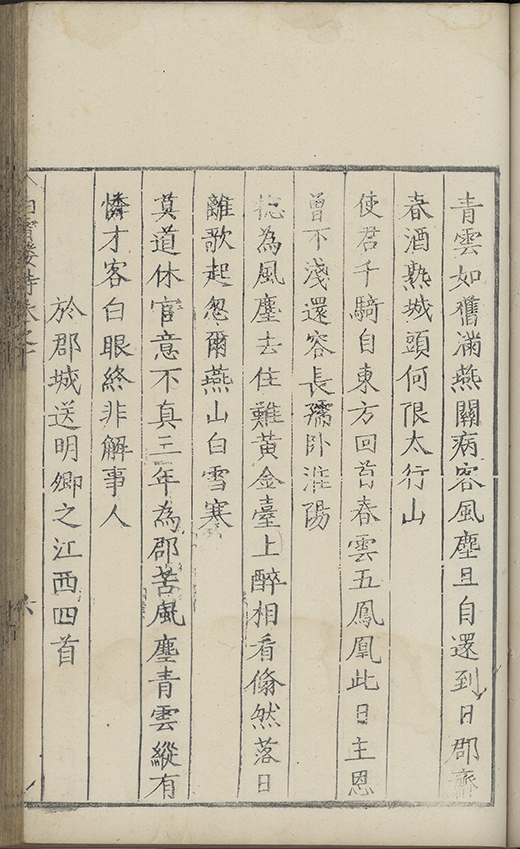 青雲如舊滿燕關病客風塵且自還到日郡齋
春酒熟城頭何限太行山
使君千騎自東方回首春雲五鳳凰此日主恩
曾不淺還容長孺卧淮陽
為風塵去住難黃金臺上醉相看翛然落日
離歌起忽爾燕山白雪寒
莫道休官意不真三年為郡苦風塵青雲縱有
憐才客白眼終非解事人
於郡城送明卿之江西四首
白雪樓詩卷之